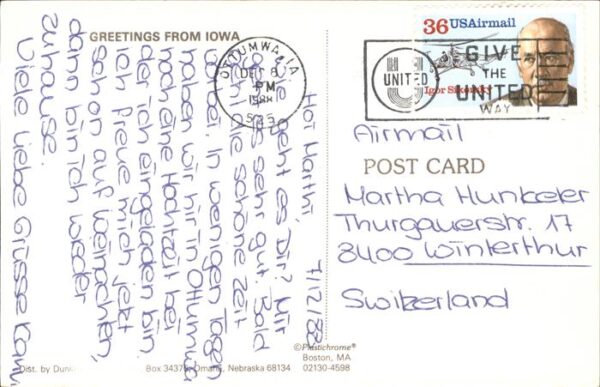 GREETINGS FROM IOWA
OTTUMWA, IA
DEC 8
PM
1988
525
36 USAirmail
Igor Sikorsky
UNITED
GIVE
THE
UNITED
WAY
7/12/88
Hoi Martha,
wie geht es Dir? Mir
geht es sehr gut. Bald
ist die schöne Zeit
vorbei. In wenigen Tagen
haben wir hier in Ottumwa
noch eine Hochzeit bei
der ich eingeladen bin.
Ich freue mich jetzt
schon auf Weihnachten,
dann bin ich wieder
zuhause.
Viele liebe Grüsse
Airmail
POST CARD
Martha Hunkeler
Thurgauerstr. 17
8400 Winterthur
Switzerland
Dist. by
Box Omaha, Nebraska 68134
©Plastichrome®
Boston, MA
02130-4598